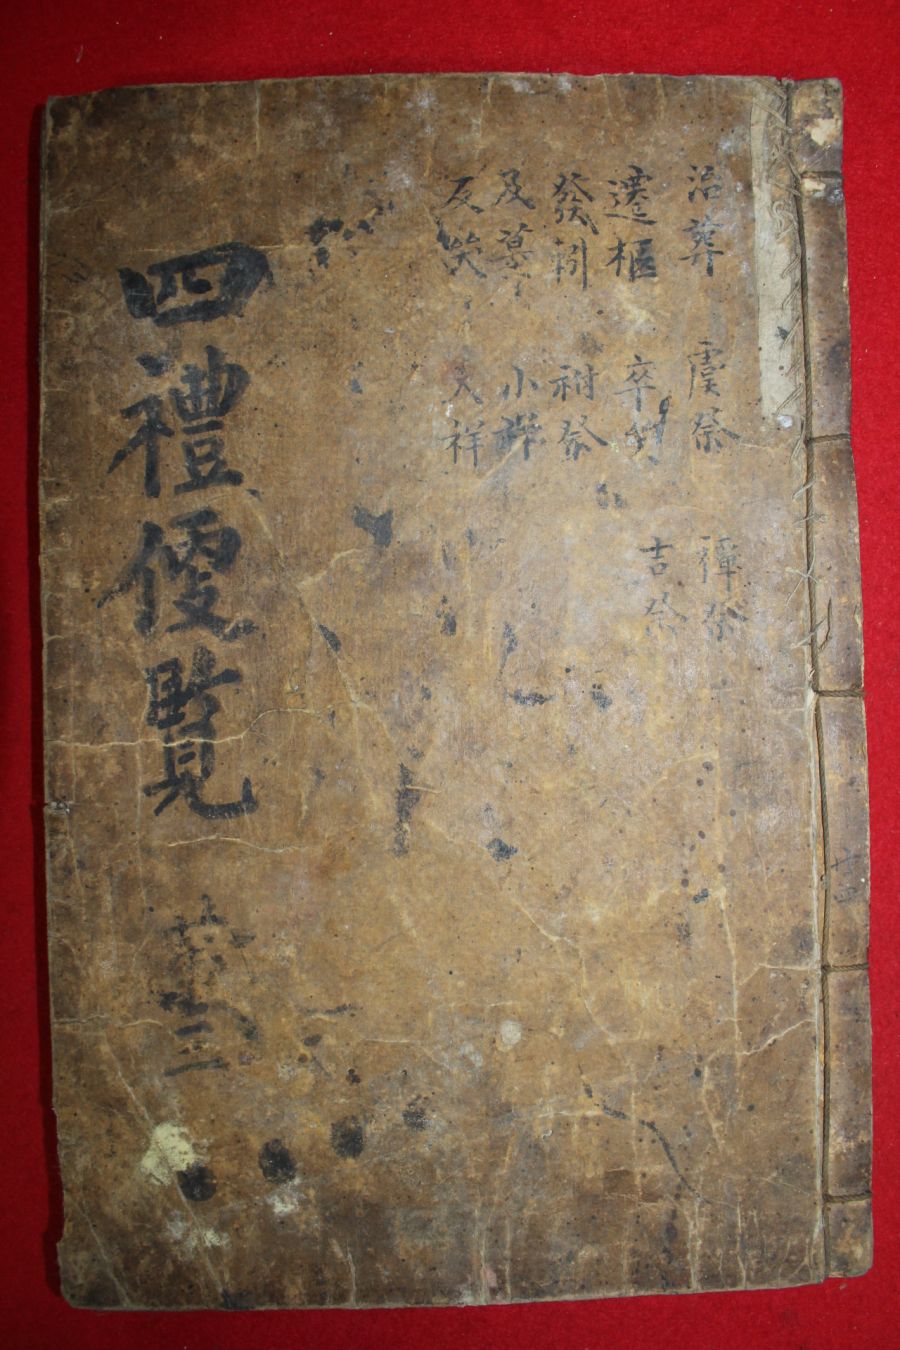 治葬
遷柩
發靷
及墓
反哭
虞祭
卒哭
祔祭
小祥
大祥
禫祭
吉祭
四禮便覽
三